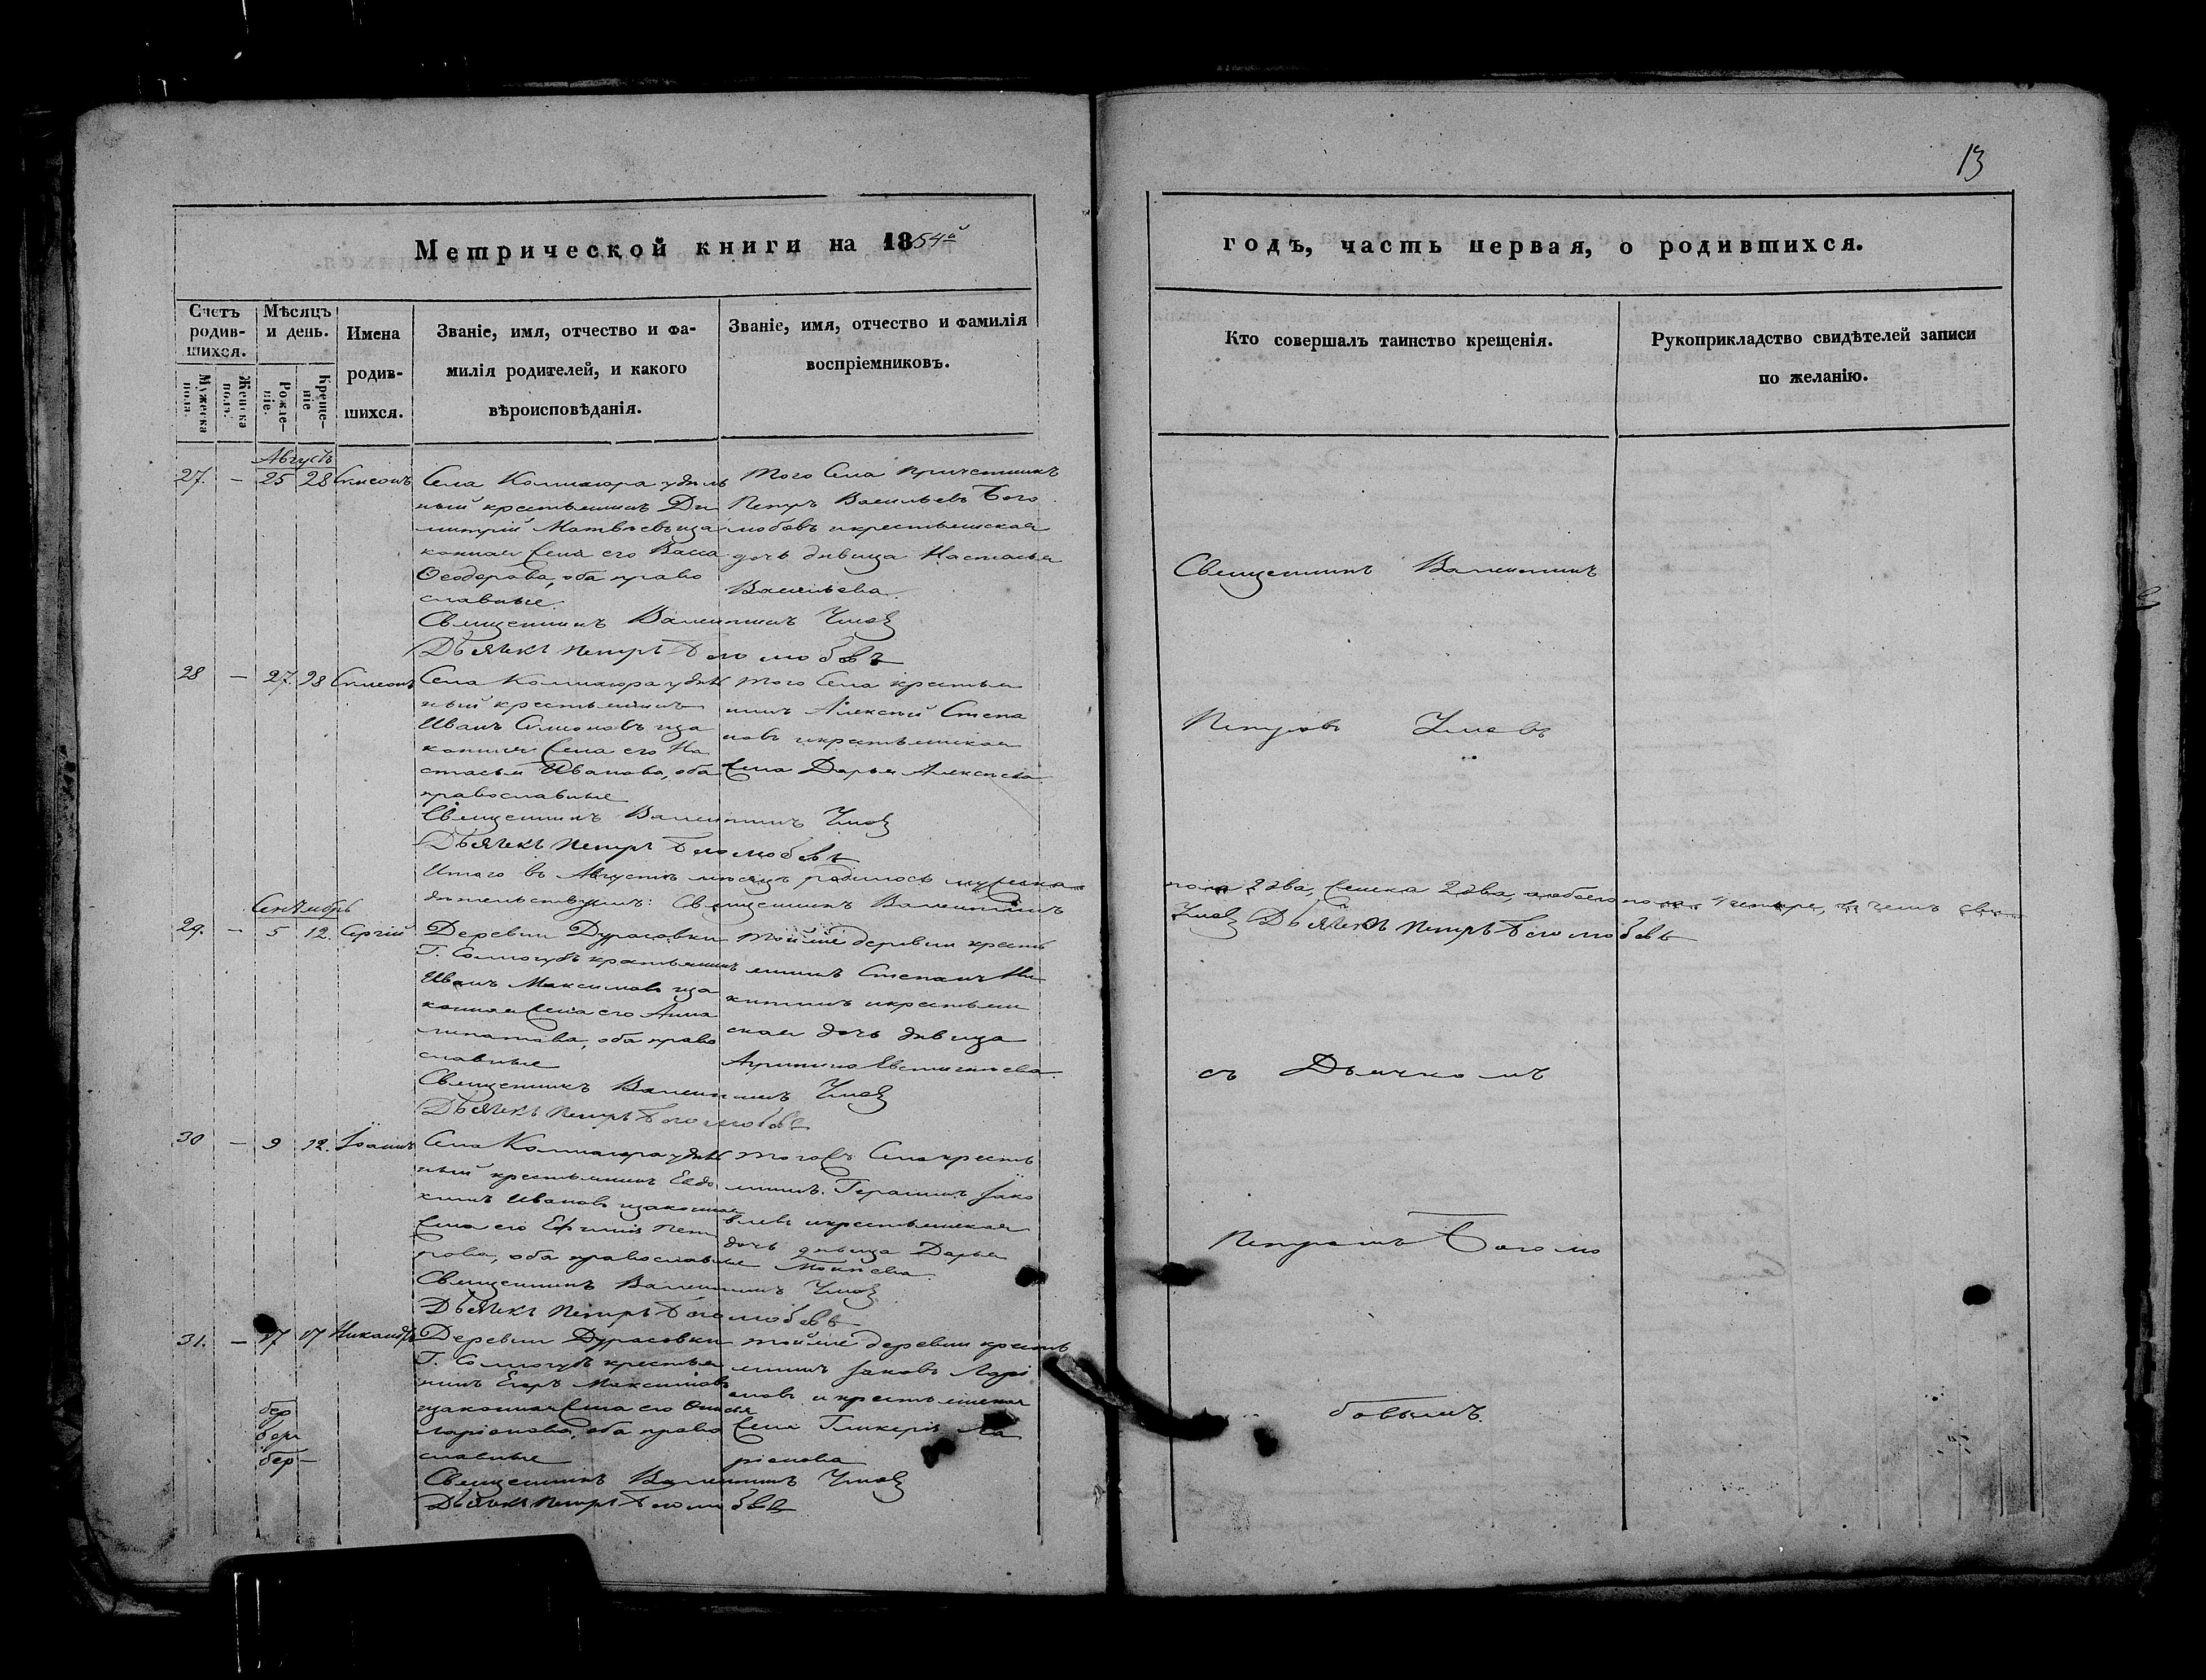 13
Метрической книги на 1854й
годъ, часть первая, о родившихся.
Счетъ родив-шихся.
Мужеска пола.
Женска пола.
Мѣсяцъ и день.
Рожде-ніе.
Креще-ніе
Имена
родив-
шихся.
Званіе, имя, отчество и фа-
милія родителей, и какого
вѣроисповѣданія.
Званіе, имя, отчество и фамилія
воспріемниковъ.
Кто совершалъ таинство крещенія.
Рукоприкладство свидѣтелей записи
по желанію.
Августъ
27. - 25 28 Симеонъ
Села удѣль
ный крестьянинъ Ди
митрій Матвѣевъ иза
конная жена его Васса
Ѳеодорова, оба право
славные.
Того Села причетникъ
Петръ Васильевъ Бого
любовъ и крестьянская
дочь дѣвица Настасья
Васильева.
Священникъ Валентинъ
Дьячекъ Петръ Боголюбовъ
28 - 27. 28 Симеонъ
Села удѣль
ный крестьянинъ
Иванъ Симоновъ иза
конная жена его На
стасья Иванова, оба
православные
Того Села крестья
нинъ Алексѣй Степа
новъ и крестьянская
жена Дарья Алексѣева
Священникъ Валентинъ
Дьячекъ Петръ Боголюбовъ
Итого въ Августѣ мѣсяцѣ родилось мужеска
пола 2 два, женска 2 два, а обоего пола 4 четыре, въ чемъ сви
дѣтельствуемъ: Священникъ Валентинъ
Дьячекъ Петръ Боголюбовъ
Сентябрь
29. - 5 12. Сергій
Деревни Дурасовки
Г. Соллогубъ крестьянинъ
Иванъ Максимовъ иза
конная жена его Анна
оба право
славные
Той же деревни кресть
янинъ Степанъ Ни
китинъ и крестьян
ская дочь дѣвица
Священникъ Валентинъ
Дьячекъ Петръ Боголюбовъ
30 - 9 12. Іоаннъ
Села удѣль
ный крестьянинъ Евдо
кимъ Ивановъ изаконная
жена его Пет
рова, оба православные
Того жъ Села кресть
янинъ Герасимъ Яко
влевъ и крестьянская
дочь дѣвица Дарья
Священникъ Валентинъ
Дьячекъ Петръ Боголюбовъ
31. - 17 17 Никандръ
Деревни Дурасовки
Г. Соллогубъ крестья
нинъ Егоръ Максимовъ
изаконная жена его
Ларіонова, оба право
славные
Той же деревни кресть
янинъ Яковъ Ларі
оновъ и крестьянская
жена Гликерія Ла
ріонова
Священникъ Валентинъ
Дьячекъ Петръ Боголюбовъ
Священникъ Валентинъ
Петровъ
съ Дьячкомъ
Петромъ Боголю
бовымъ.